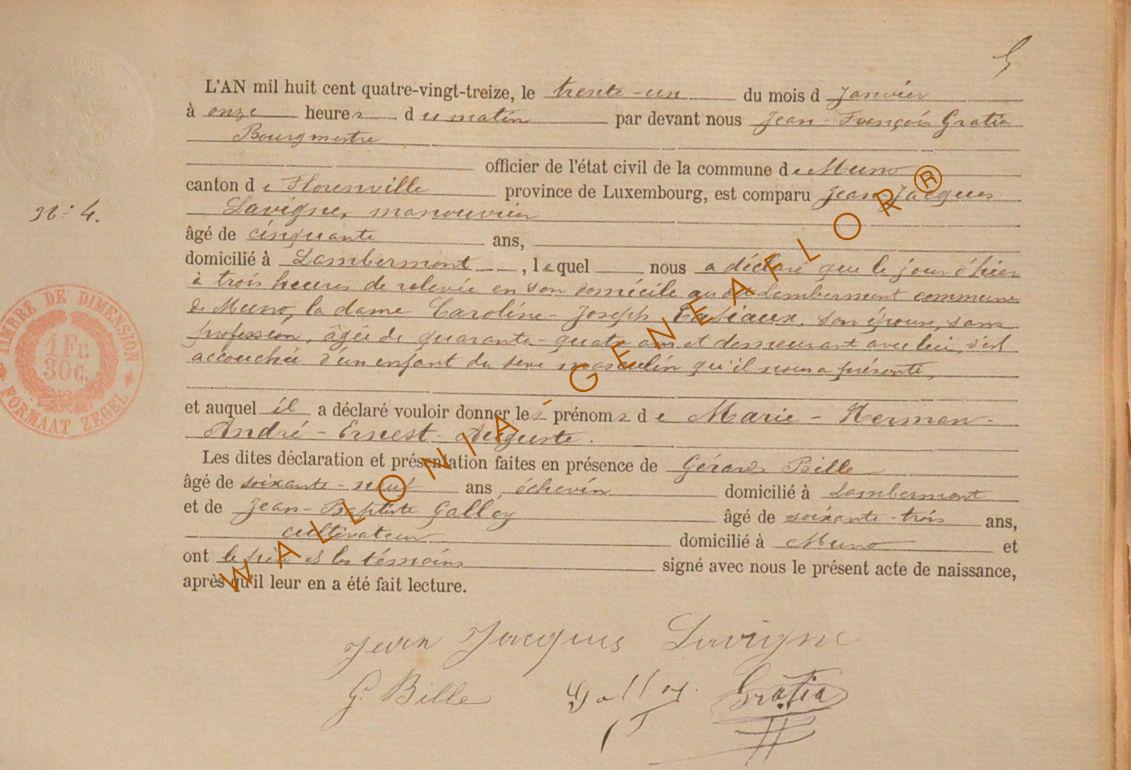 5
L'AN mil huit cent quatre-vingt-treize, le trente-un du mois d Janvier
à onze heures du matin par devant nous Jean-François Gratia
Bourgmestre
officier de l'état civil de la commune de Muno
canton de Florenville province de Luxembourg, est comparu Jean-Jacques
Lavigne, manouvrier
No 4.
âgé de cinquante ans,
domicilié à Lambermont, lequel nous a déclaré que le jour d'hier
à trois heures de relevée en son domicile au dit Lambermont commune
de Muno, la dame Caroline-Joseph, son épouse, sans
profession, âgée de quarante-quatre ans et demeurant avec lui, s'est
accouchée d'un enfant du sexe masculin qu'il nous a présenté,
et auquel il a déclaré vouloir donner les prénoms de Marie-Herman-
André-Ernest-Auguste.
Les dites déclaration et présentation faites en présence de Gérard Bille
âgé de soixante-neuf ans, échevin domicilié à Lambermont
et de Jean-Baptiste Galloy âgé de soixante-trois ans,
cultivateur domicilié à Muno et
ont le père et les témoins signé avec nous le présent acte de naissance,
après qu'il leur en a été fait lecture.
Jean Jacques Lavigne
G. Bille Galloy. Gratia
TIMBRE DE DIMENSION
1 Fr.
30 c.
FORMAAT ZEGEL
WALLONIA GENEAFLOR®